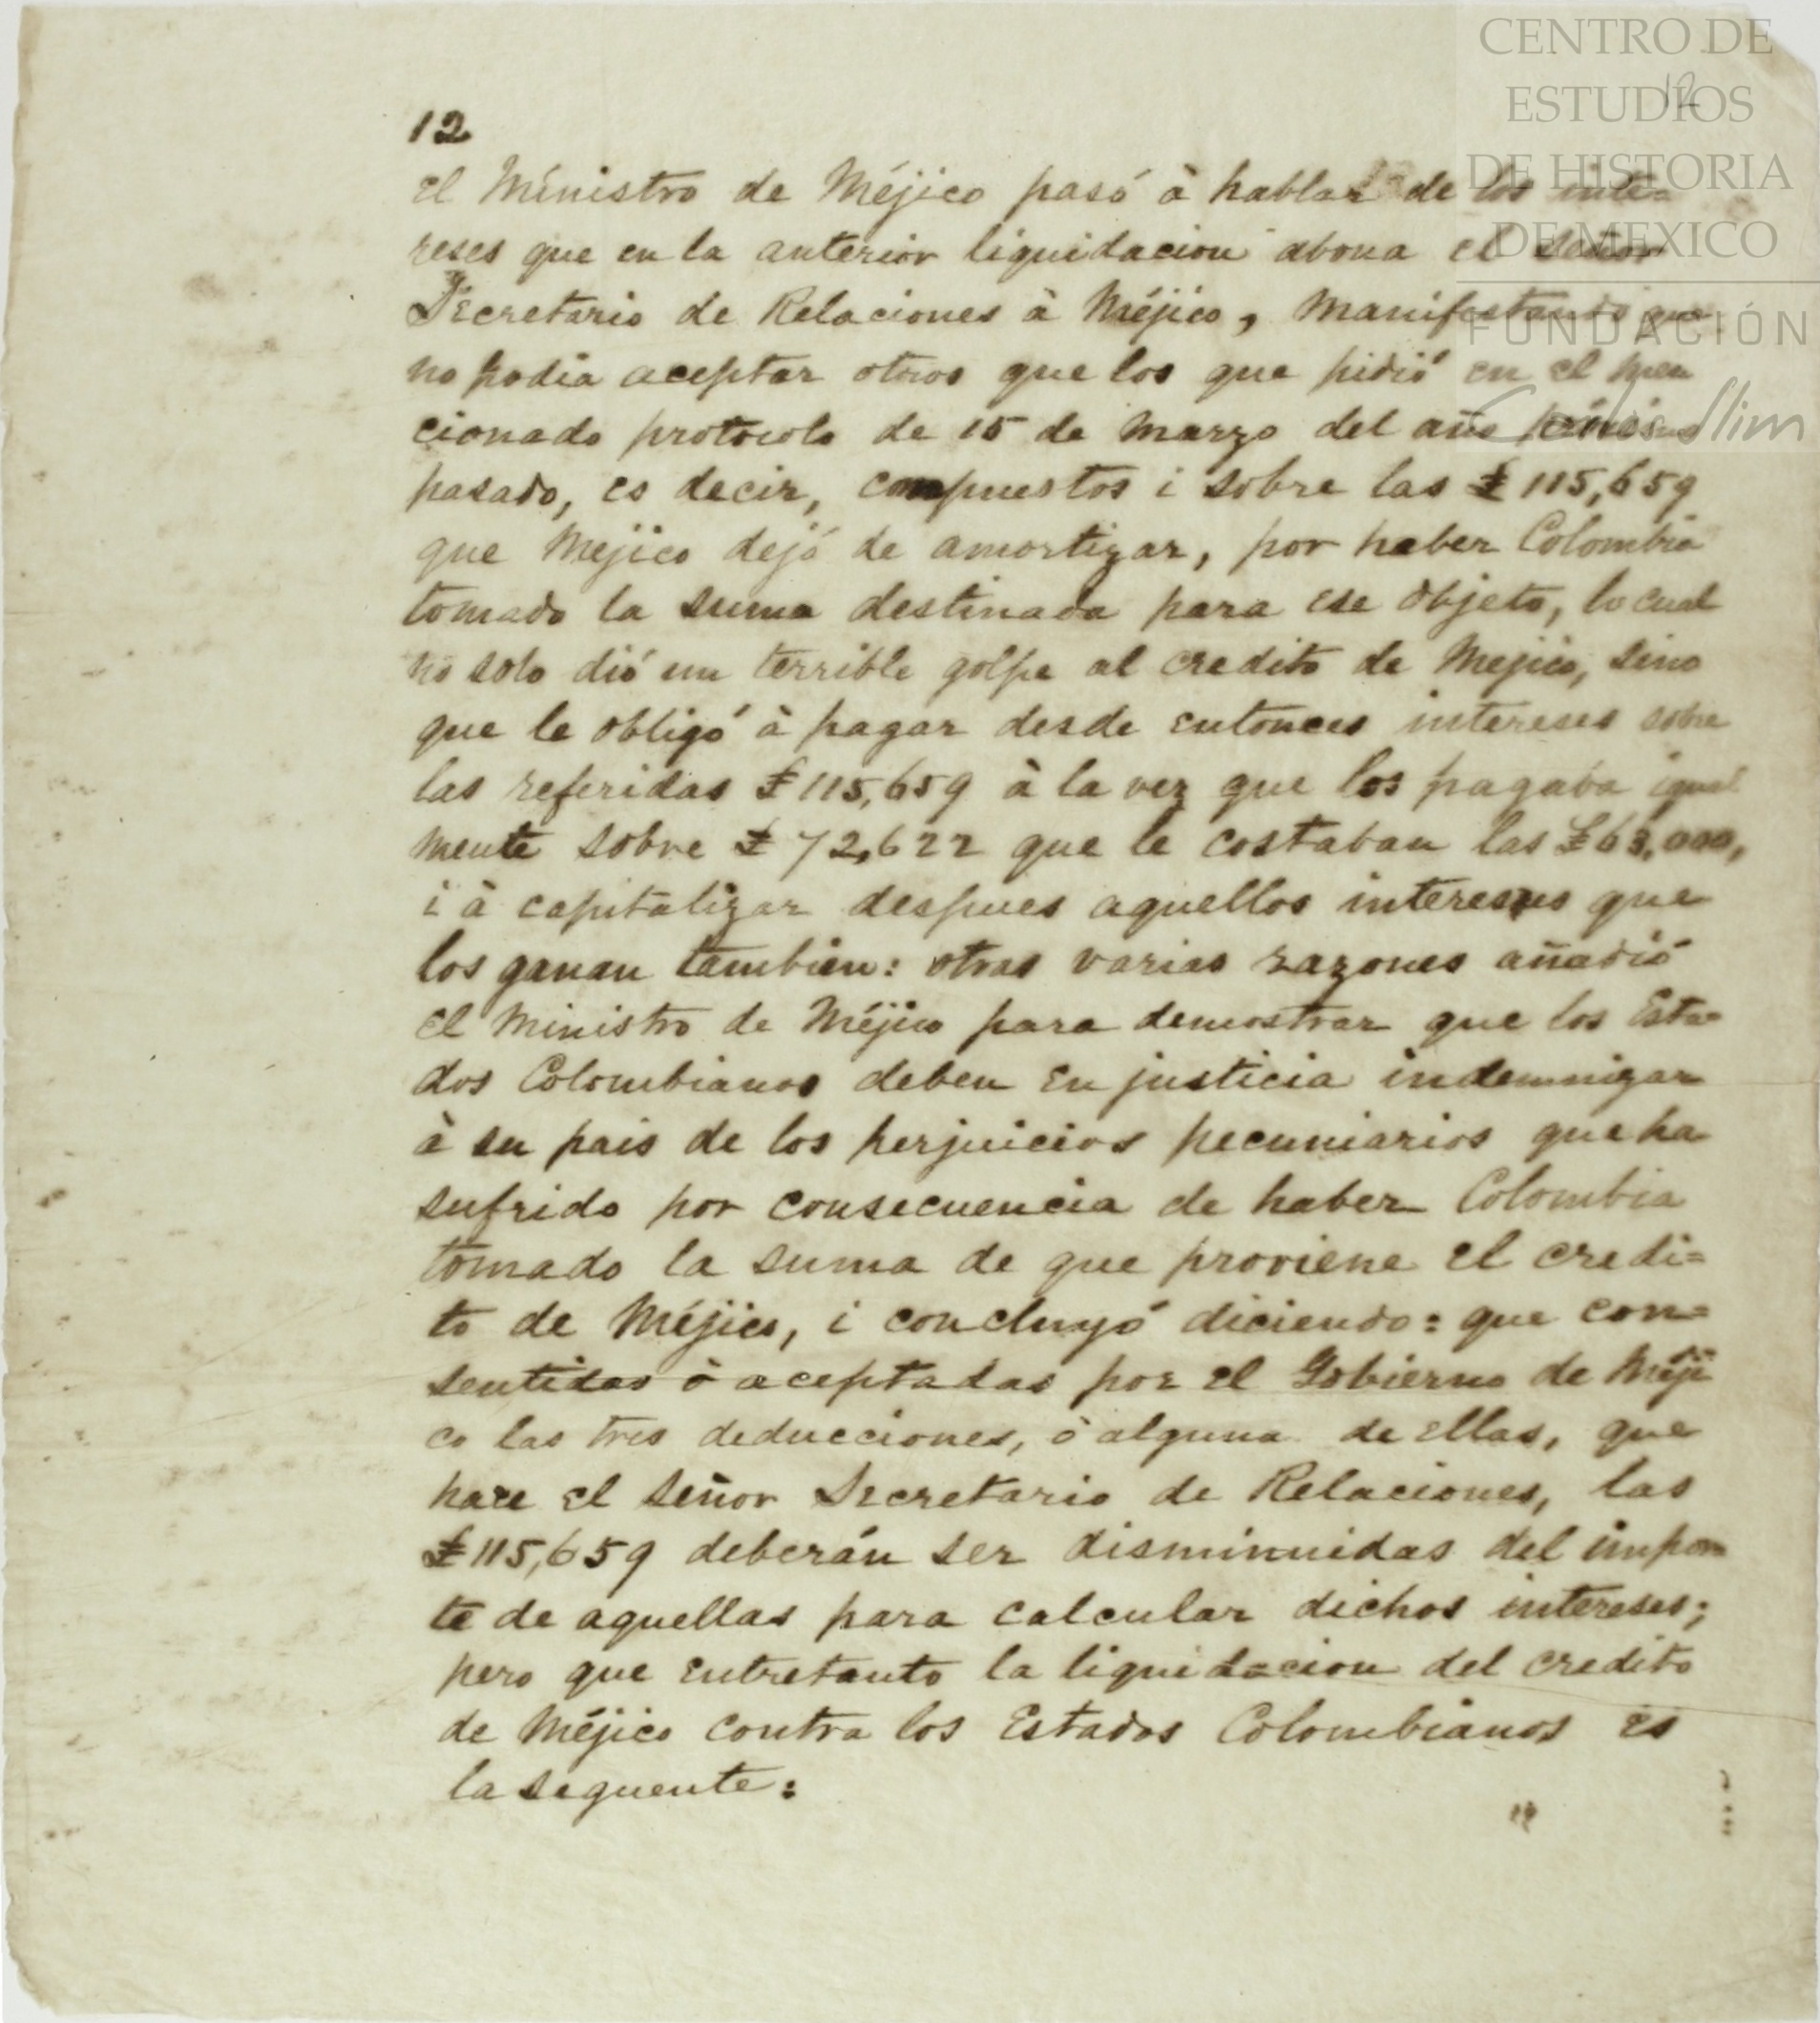 CENTRO DE
ESTUDIOS
DE HISTORIA
DE MEXICO
FUNDACIÓN
Carlos Slim
12
12
El Ministro de Méjico pasó à hablar de los inte=
reses que en la anterior liquidacion abona el Señor
Secretario de Relaciones à Méjico, manifestando que
no podia aceptar otros que los que pidió en el men
cionado protocolo de 15 de Marzo del año próximo
pasado, es decir, compuestos i sobre las £ 115,659
que Mejico dejó de amortizar, por haber Colombia
tomado la suma destinada para ese objeto, lo cual
no solo dió un terrible golpe al credito de Mejico, sino
que le obligó à pagar desde entonces intereses sobre
las referidas £ 115,659 à la vez que los pagaba igual
mente sobre £ 72,622 que le costaban las £ 63,000,
i à capitalizar despues aquellos intereses que
los ganan tambien: otras varias razones añadió
el Ministro de Méjico para demostrar que los Esta=
dos Colombianos deben en justicia indemnizar
à su pais de los perjuicios pecuniarios que ha
sufrido por consecuencia de haber Colombia
tomado la suma de que proviene el credi=
to de Méjico, i concluyó diciendo: que con=
sentidas ò aceptadas por el Gobierno de Méji
co las tres deducciones, ò alguna de ellas, que
hace el Señor Secretario de Relaciones, las
£ 115,659 deberán ser disminuidas del impor
te de aquellas para calcular dichos intereses;
pero que entretanto la liquidacion del credito
de Méjico contra los Estados Colombianos es
la seguente: